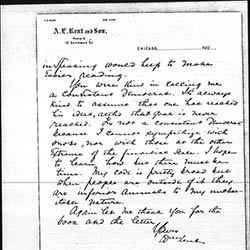 A. E. Kent and Son.
CHICAGO,
would help to make
easier reading.
You were kind in calling me
a consistent Democrat. It's always
kind to assume that one has reached
his ideas, altho that goal is never
reached. I'm not a consistent Democrat
because I cannot sympathize with
snobs, nor with those at the other
extreme of the financial scale. I hope
to learn how but there must be
time. My code is pretty broad but
when people are outside of it they
are inferior animals to my
nature.
Again let me thank you for the
book and the letter.
Yours